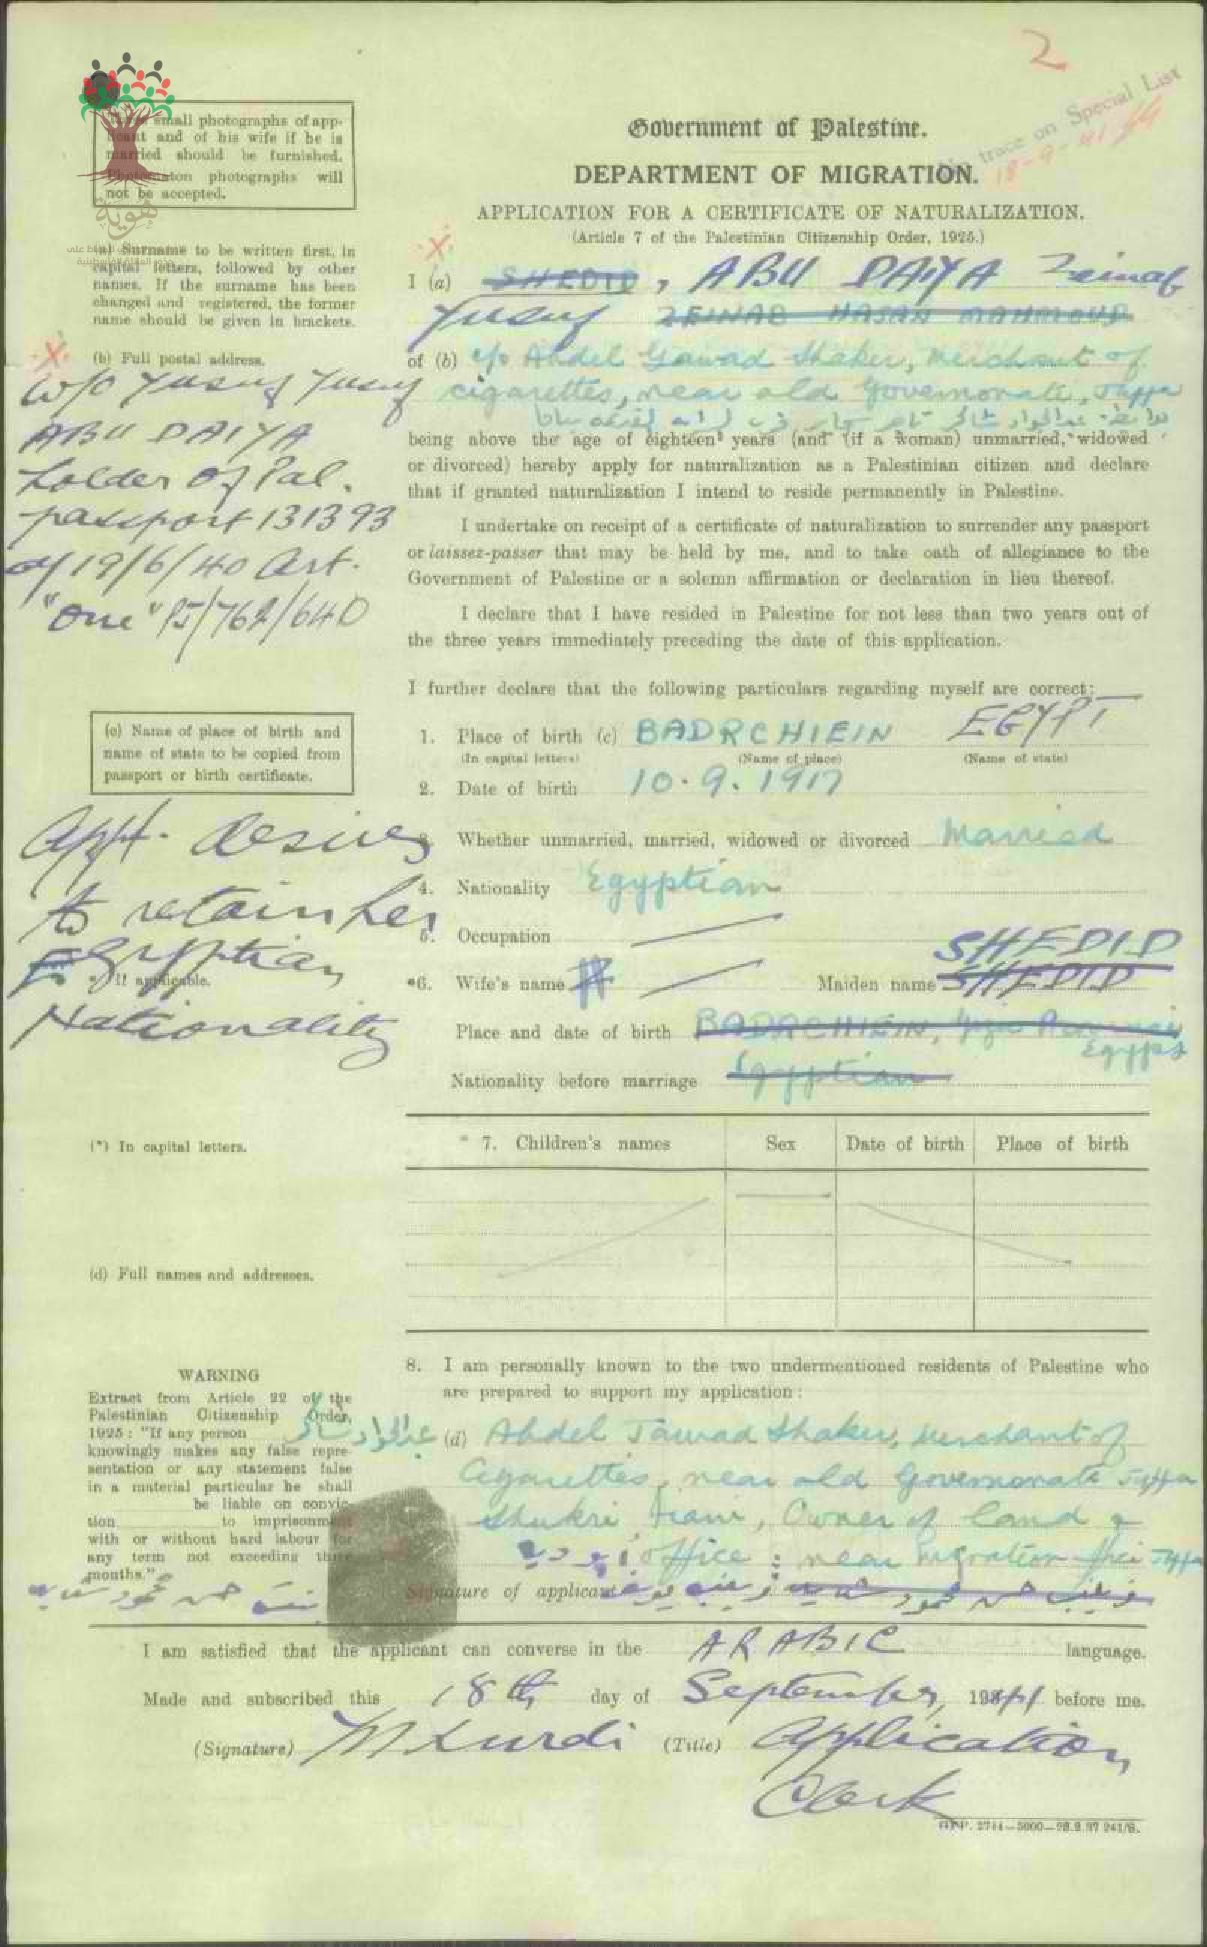 2
No trace on Special List
18-9-41
Small photographs of app-
and of his wife if he is
married should be furnished.
photographs will
not be accepted.
هوية
Government of Palestine.
DEPARTMENT OF MIGRATION.
APPLICATION FOR A CERTIFICATE OF NATURALIZATION.
(Article 7 of the Palestinian Citizenship Order, 1925.)
(a) Surname to be written first, in
capital letters, followed by other
names. If the surname has been
changed and registered, the former
name should be given in brackets.
X
I (a) SHEDID, ABU DAIYA Zeinab
Yusuf ZEINAB HASAN MAHMOUD
X
(b) Full postal address.
W/o Yusuf Yusuf
ABU DAIYA
holder of Pal.
passport 131393
of 19/6/40 Art.
"One"
of (b) c/o Abdel Gawad Shaker, Merchant of
cigarettes, near old Governorate, Jaffa
being above the age of eighteen years (and (if a woman) unmarried, widowed
or divorced) hereby apply for naturalization as a Palestinian citizen and declare
that if granted naturalization I intend to reside permanently in Palestine.
I undertake on receipt of a certificate of naturalization to surrender any passport
or laissez-passer that may be held by me, and to take oath of allegiance to the
Government of Palestine or a solemn affirmation or declaration in lieu thereof.
I declare that I have resided in Palestine for not less than two years out of
the three years immediately preceding the date of this application.
I further declare that the following particulars regarding myself are correct:
(c) Name of place of birth and
name of state to be copied from
passport or birth certificate.
1. Place of birth (c) BADRCHIEIN EGYPT
(In capital letters) (Name of place) (Name of state)
2. Date of birth 10.9.1917
Appt. desires
to retain her
Egyptian
Nationality
3. Whether unmarried, married, widowed or divorced Married
4. Nationality Egyptian
5. Occupation
* If applicable.
SHEDID
*6. Wife's name Maiden name SHEDID
Place and date of birth BADRCHIEIN, Egypt
Nationality before marriage Egyptian
(*) In capital letters.
* 7. Children's names Sex Date of birth Place of birth
(d) Full names and addresses.
8. I am personally known to the two undermentioned residents of Palestine who
are prepared to support my application:
WARNING
Extract from Article 22 of the
Palestinian Citizenship Order,
1925: "If any person
knowingly makes any false repre-
sentation or any statement false
in a material particular he shall
be liable on convic-
tion to imprisonment
with or without hard labour for
any term not exceeding three
months."
عبدالجواد شاكر
(d) Abdel Jawad Shaker, Merchant of
Cigarettes, near old Governorate Jaffa
Shukri, Owner of land &
office: near Migration Jaffa
Signature of applicant
I am satisfied that the applicant can converse in the ARABIC language.
Made and subscribed this 18th day of September, 1941 before me.
(Signature) M Kurdi (Title) Application
Clerk
GPP. 2744—5000—28.9.37 241/S.